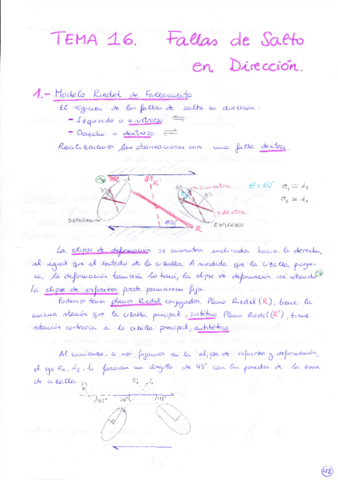 TEMA 16. Fallas de Salto
en Dirección.
1.- Modelo Riedel de Fallamiento
El régimen de las fallas de salto en dirección:
- Izquierdo o sinistroso
- Derecho o dextroso
Realizaremos las observaciones con una falla dextra.
R'
sinextra
θ=60°
dextra
DEFORMACIÓN
ESFUERZO
R
La elipse de deformación se encuentra inclinada hacia la derecha,
al igual que el sentido de la cizalla. A medida que la cizalla progre-
sa, la deformación también lo hará, la elipse de deformación irá rotando
la elipse de esfuerzos permanece fija.
Podemos tener planos Riedel conjugados. Plano Riedel (R), tiene la
misma rotación que la cizalla principal, sintético. Plano Riedel (R'), tiene
rotación contraria a la cizalla principal, antitético.
Al comienzo, si nos fijamos en la elipse de esfuerzo y deformación,
el eje σ1, λ1 forman un ángulo de 45° con las paredes de la zona
de cizalla
45°
48